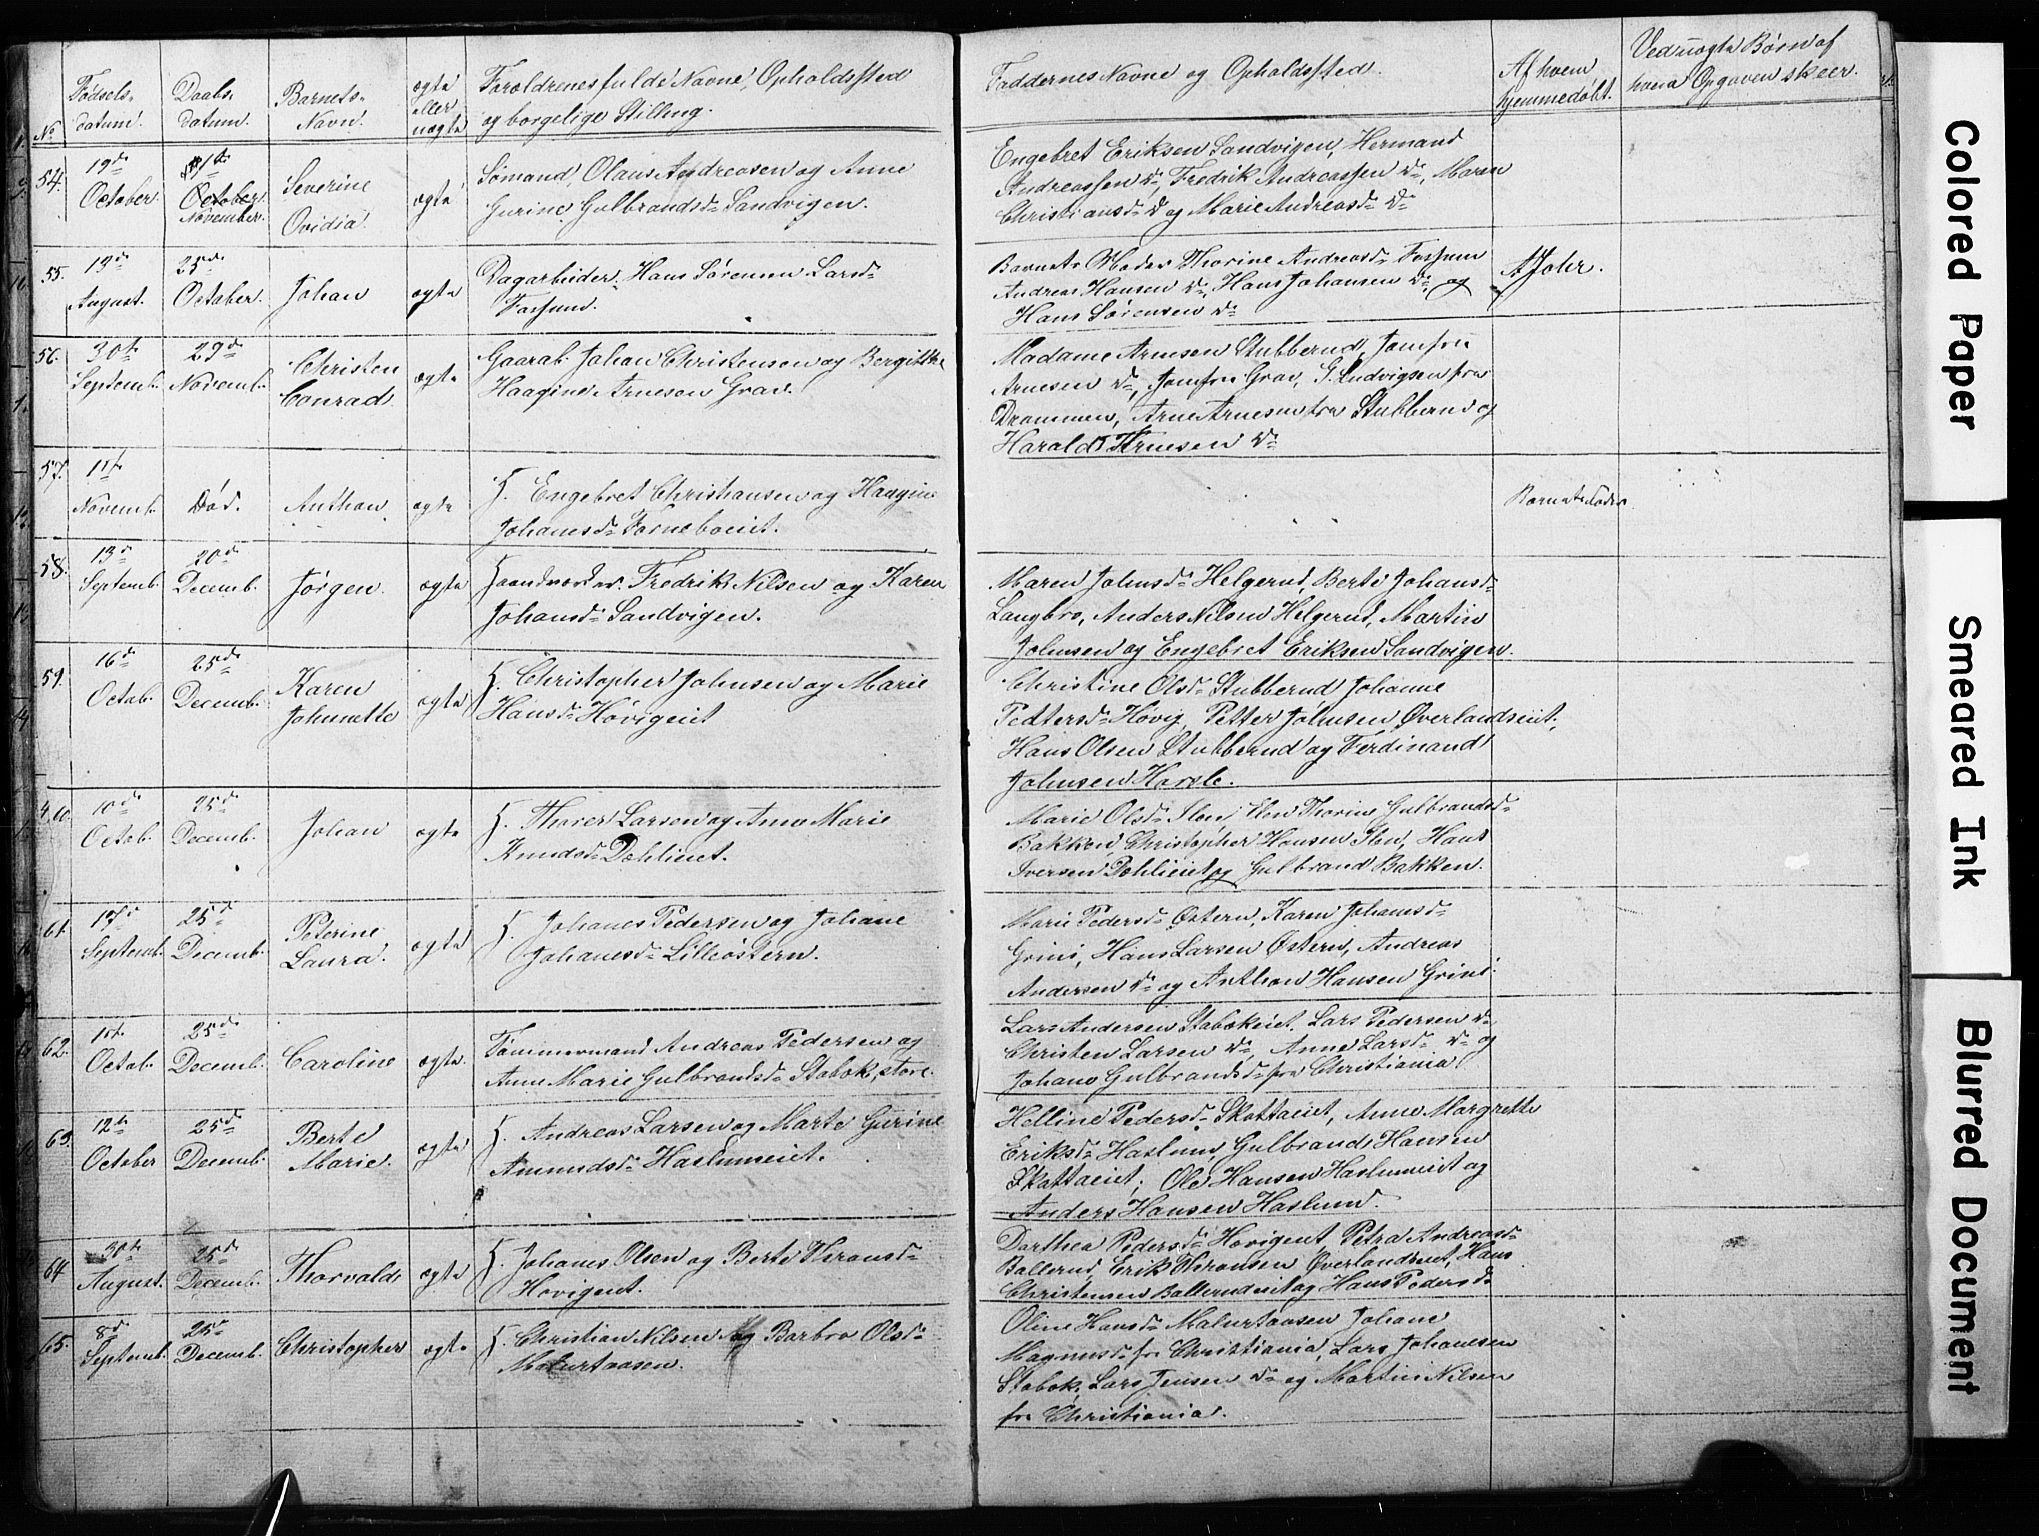 No
Fødsels-
datum.
Daabs-
datum.
Barnets
Navn.
ægte
eller
uægte
Forældrenes fulde Navne, Opholdssted
og borgelige Stilling.
Faddernes Navne og Opholdssted.
Af hvem
hjemmedøbt.
Ved uægte Børn af
hvem Opgaven skeer.
54.
19de
October.
1te
October
November.
Severine
Ovidia.
ægte
Sømand, Olaus Andreasen og Anne
Gurine Gulbrandsd. Sandvigen.
Engebret Eriksen Sandvigen, Hermand
Andreassen do, Fredrik Andreassen do, Maren
Christiansd. do og Marie Andreasd. do
55.
13de
August.
25de
October.
Johan
ægte
Dagarbeider. Hans Sørensen Larsd.
Fossum.
Barnets Moder Thorine Andreasd. Fossum
Andreas Hansen do, Hans Johansen do og
Hans Sørensen do
56.
30te
Septemb.
29de
Novemb.
Christen
Conrad
ægte
Gaarab. Johan Christensen og Bergitthe
Haagine Arnesen Grav.
Madame Arnesen Stubberud, Jomfru
Arnesen do, Jomfru Grav, G. Ludvigsen fra
Drammen, Arne Arnesen fra Stubberud og
Harald Arnesen do
57.
1te
Novemb.
Død.
Anthon
ægte
H. Engebret Christiansen og Haagine
Johanesd. Forneboeiet.
Barnets Fader.
58.
13de
Septemb.
20de
Decemb.
Jørgen.
ægte
Haandværker. Fredrik Nilsen og Karen
Johansd. Sandvigen.
Maren Johnsd. Helgerud, Berte Johansd.
Langbro, Anders Nilsen Helgerud, Martin
Johnsen og Engebret Eriksen Sandvigen.
59.
16de
Octob.
25de
Decemb.
Karen
Johnette
ægte
H. Christopher Johnsen og Marie
Hansd. Høvigeiet
Christine Olsd. Stubberud Johanne
Pettersd. Høvig, Petter Johnsen Øverlandseiet,
Hans Olsen Stubberud og Ferdinand
Johnsen Harsle.
60.
10de
Octob.
25de
Decemb.
Johan
ægte
H. Thorer Larsen og Anne Marie
Knudsd. Dehlieiet.
Marie Olsd. Ilen, Elen Thorine Gulbrandsd.
Bakken, Christopher Hansen Ilen, Hans
Iversen Dehlieiet og Gulbrand Bakken.
61.
17de
Septemb.
25de
Decemb.
Peterine
Laura.
ægte
H. Johanes Pedersen og Johane
Johanesd. Lilleøstern.
Marie Pedersd. Østern, Karen Johanesd.
Grini, Hans Larsen Østern, Andreas
Andersen do og Anthon Hansen Grini.
62.
1te
Octob.
25de
Decemb.
Caroline
ægte.
Tømmermand Andreas Pedersen og
Anne Marie Gulbrandsd. Stabæk, store.
Lars Andersen Stabækeiet. Lars Pedersen do
Christen Larsen do, Anne Larsd. do og
Johane Gulbrandsd. fra Christiania
63.
12te
October
25de
Decemb.
Berte
Marie.
ægte
H. Andreas Larsen og Marte Gurine
Amundsd. Haslumeiet.
Helline Pedersd. Skottaeiet, Anne Margrethe
Eriksd. Haslum, Gulbrand Hansen
Skottaeiet, Ole Hansen Haslumeiet og
Anders Hansen Haslum.
64
30te
August.
25de
Decemb.
Thorvald
ægte
H. Johanes Olsen og Berte Thronsd.
Høvigeiet.
Dorthea Pedersd. Høvigeiet, Petra Andreasd.
Ballerud, Erik Thronsen Øverlandseiet, Hans
Christensen Ballerudeiet og Hans Pedersen do
65.
8de
Septemb.
25de
Decemb.
Christopher
ægte
H. Christian Nilsen og Barbro Olsd.
Malurtaasen.
Oline Hansd. Malurtaasen Johane
Magnusd. fra Christiania, Lars Johanesen
Stabæk, Lars Jensen do og Martin Nilsen
fra Christiania.
Colored Paper
Smeared Ink
Blurred Document